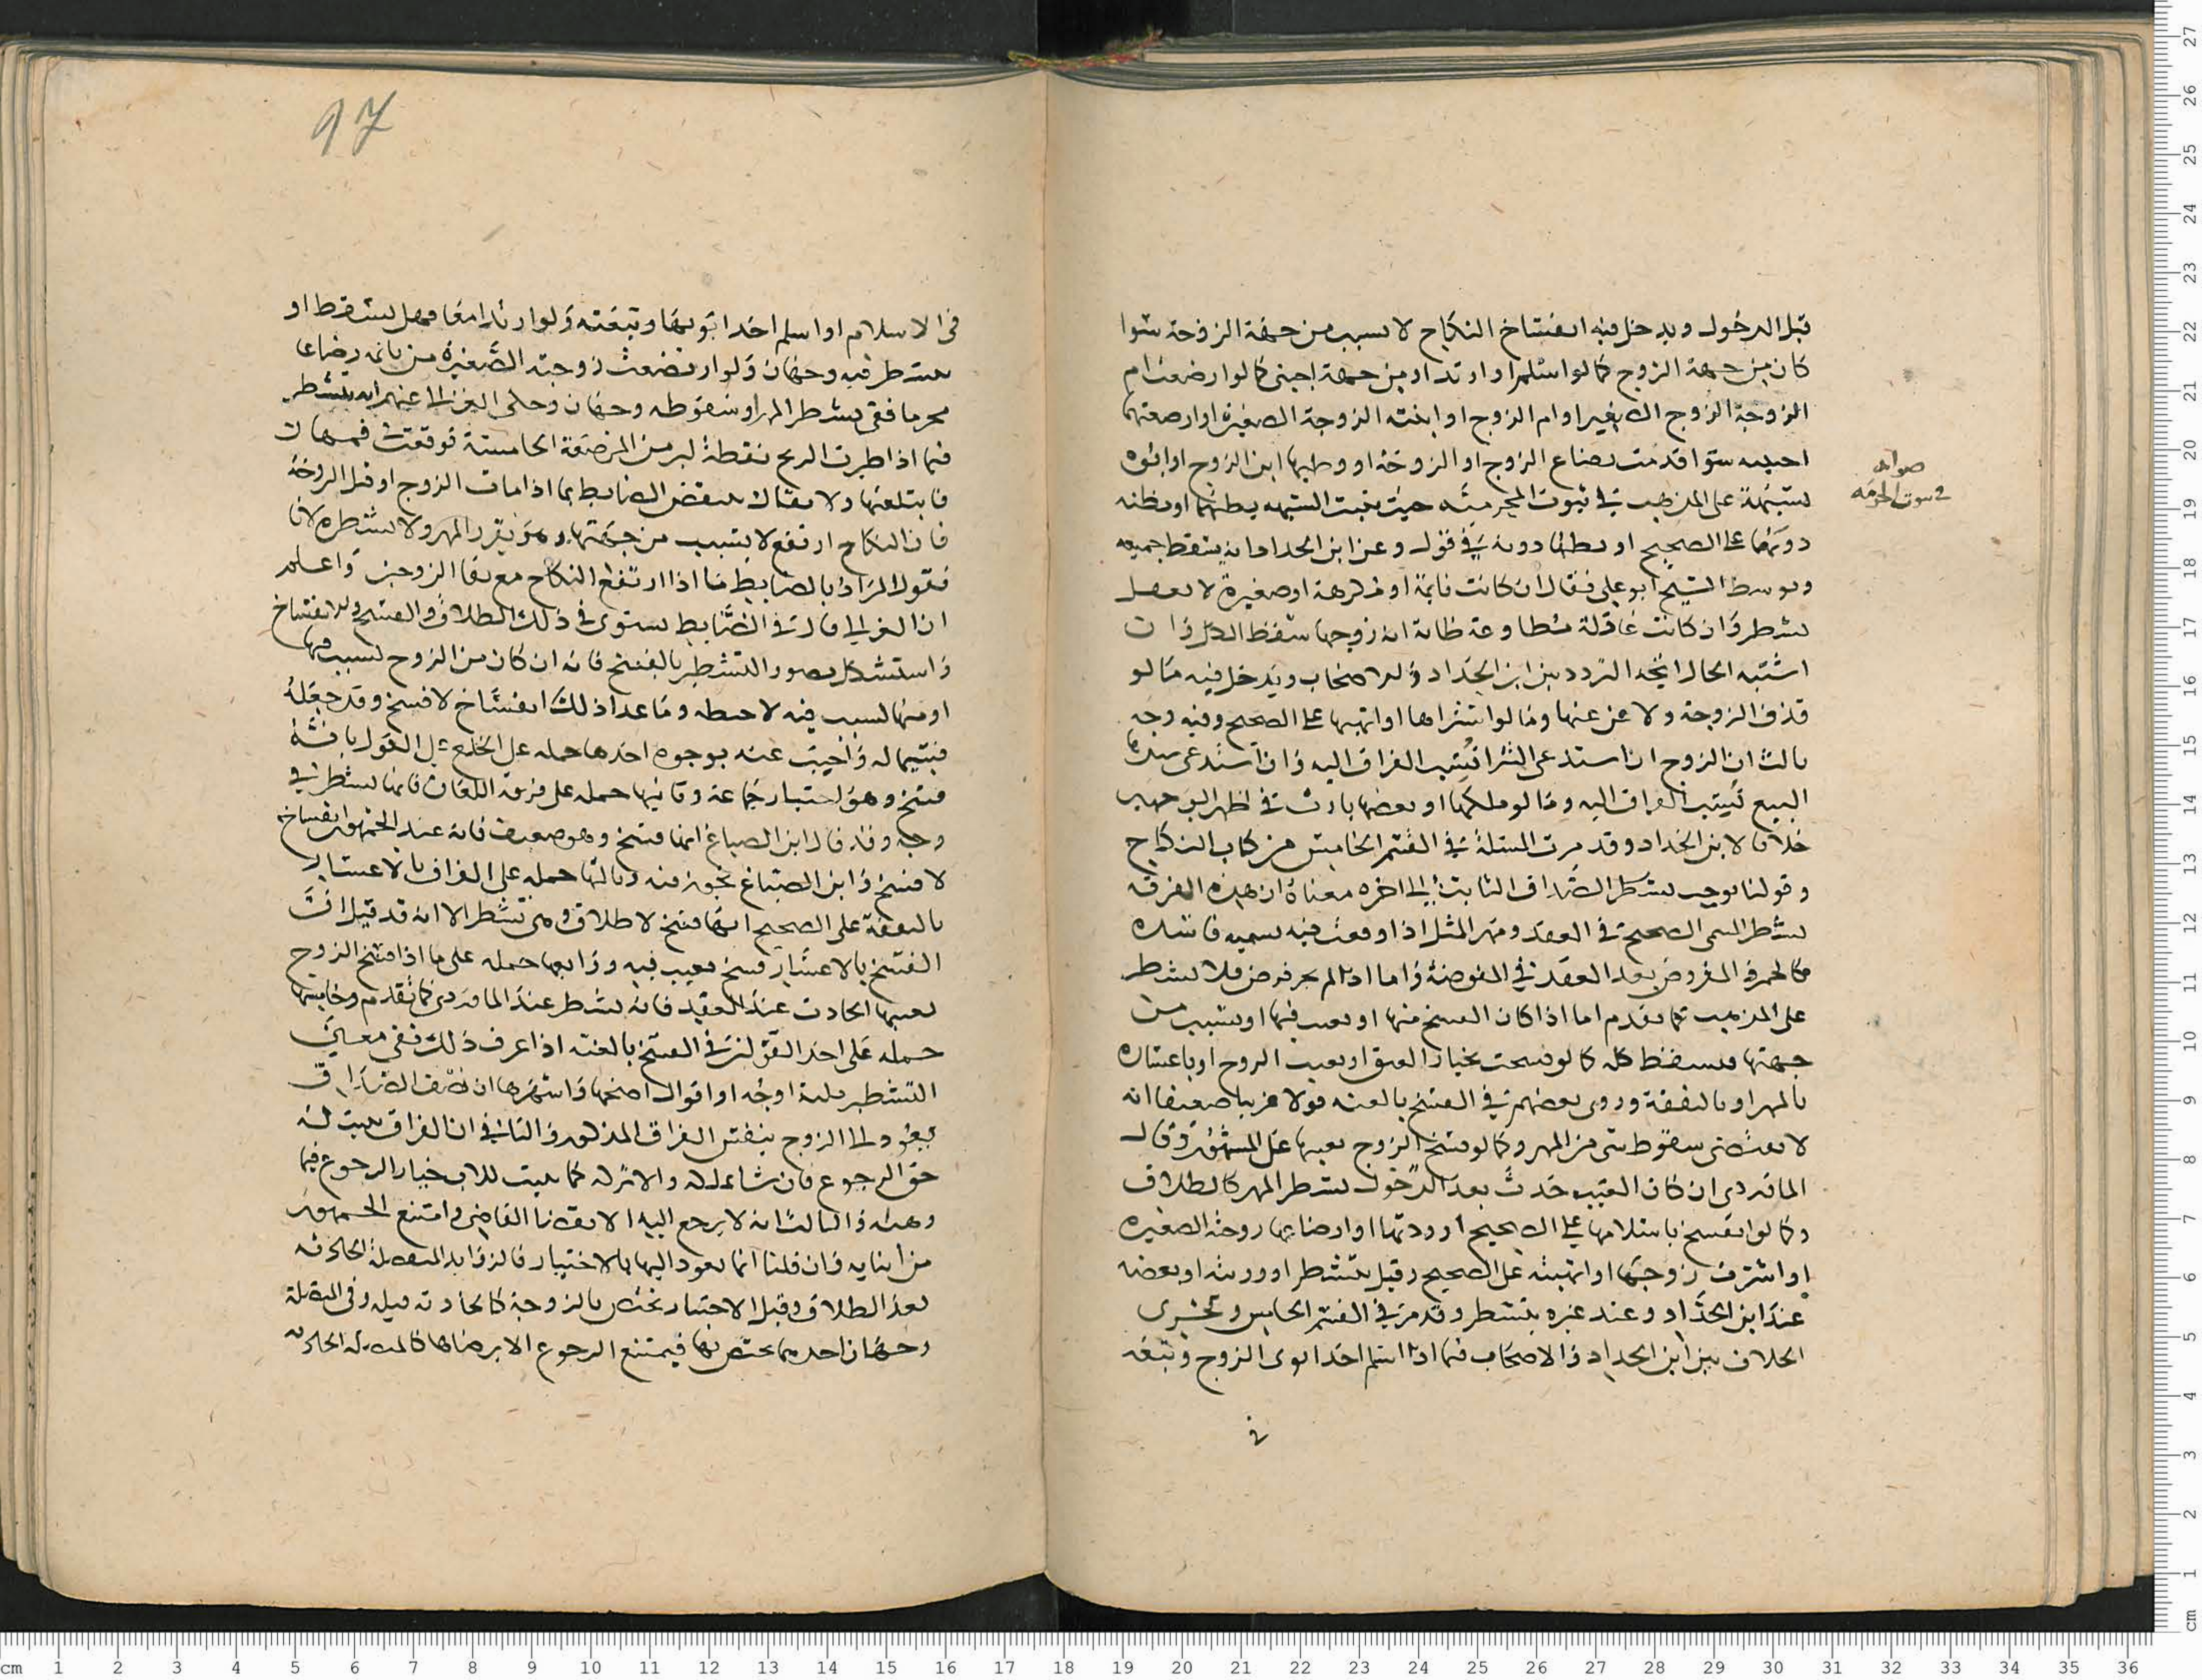 قبل الدخول ويدخل فيه انفساخ النكاح لا بسبب من جهة الزوجة سوا
كان من جهة الزوج كما لو اسلم او ارتد او من جهة اجنبي كما لو ارضعت ام
الزوجة الزوج الصغير او ام الزوج او ابنته الزوجة الصغيرة او ارضعتهما
اجنبيه سوا تقدمت رضاع الزوج او الزوجة او وطيها ابن الزوج او ابوه
بشبهة على المذهب في ثبوت المحرمية حيث تثبت الشبهه بظنهما او بظنه
دونها على الصحيح او بظنها دونه في قول وعن ابن الحداد انه يسقط جميعه
وتوسط الشيخ ابو علي فقال ان كانت نايمة او مكرهة او صغيرة لا تعقل
تشطر وان كانت عاقلة مطاوعة ظانة انه زوجها سقط الكل وان
اشتبه الحال اتجه التردد بين ابن الحداد والاصحاب ويدخل فيه ما لو
قذف الزوجة ولاعن عنها وما لو اشتراها او اتهبها على الصحيح وفيه وجه
ثالث ان الزوج ان استدعى الشرا نسب الفراق اليه وان استدعى سيدها
البيع نسب الفراق اليه وما لو ملكها او بعضها بارث في اظهر الوجهين
خلافا لابن الحداد وقد مرت المسئلة في القسم الخامس من كتاب النكاح
وقولنا يوجب تشطر الصداق الثابت الى اخره معناه ان هذه الفرقة
تشطر المسمى الصحيح في العقد ومهر المثل اذا وقعت فيه تسميه فاسده
كالخمر والمفروض بعد العقد في المفوضة واما اذا لم يجر فرض فلا تشطر
على المذهب كما تقدم اما اذا كان الفسخ منها او بعيب فيها او بسبب من
جهتها فيسقط كله كما لو فسخت بخيار العتق او بعيب الزوج او باعساره
بالمهر او بالنفقة وروى بعضهم في الفسخ بالعنه قولا غريبا ضعيفا انه
لا يقتضي سقوط شي من المهر وكما لو فسخ الزوج بعيبها على المشهور وقال
الماوردي ان كان العيب حدث بعد الدخول تشطر المهر كالطلاق
وكما لو انفسخ باسلامها على الصحيح او ردتها او ارضاعها زوجه الصغيره
او اشترت زوجها او اتهبته على الصحيح وقيل يتشطر او ورثته او بعضه
عند ابن الحداد وعند غيره يتشطر وقد مر في القسم الخامس ويجري
الخلاف بين ابن الحداد والاصحاب فيما اذا اسلم احد ابوي الزوج وتبعه
في
صوابه
في ثبوت الحرمه
97
في الاسلام او اسلم احد ابويها وتبعته ولو ارتدا معا فهل يسقط او
يتشطر فيه وجهان ولو ارتضعت زوجته الصغيرة من نايمة رضاعا
محرما ففي تشطر المهر او سقوطه وجهان وحكى الغزالي عنهم انه يتشطر
فيما اذا طيرت الريح نقطة لبن من المرضعة الخامسة فوقعت في فمها ان
فابتلعتها ولا يقال ينتقض الضابط بما اذا مات الزوج او قتل الزوجة
فان النكاح ارتفع لا بسبب من جهتها وهو يقرر المهر ولا يشطره لانا
نقول المراد بالضابط ما اذا ارتفع النكاح مع بقا الزوجين واعلم
ان الغزالي قال في الضابط يستوي في ذلك الطلاق والفسخ والانفساخ
واستشكل تصور التشطير بالفسخ فانه ان كان من الزوج بسبب فيها
او منها بسبب فيه لاحبطه وما عدا ذلك انفساخ لا فسخ وقد جعله
قسيما له واجيب عنه بوجوه احدها حمله على الخلع على القول بانه
فسخ وهو اختيار جماعة وثانيها حمله على فرقة اللعان فانها تشطر في
وجه وقد قال ابن الصباغ انها فسخ وهو ضعيف فانه عند الجمهور انفساخ
لا فسخ وابن الصباغ تجوز فيه وثالثها حمله على الفراق بالاعسار
بالنفقة على الصحيح انها فسخ لا طلاق ومن تشطر الا انه قد قيل ان
الفسخ بالاعسار فسخ بعيب فيه ورابعها حمله على ما اذا فسخ الزوج
بعيبها الحادث عند العقد فانه تشطر عند الماوردي كما تقدم وخامسها
حمله على احد القولين في الفسخ بالعنه اذا عرف ذلك ففي معنى
التشطير ثلثة اوجه او اقوال اصحها واشهرها ان نصف الصداق
يعود الى الزوج بنفس الفراق المذكور والثاني ان الفراق يثبت له
حق الرجوع فان شا تملكه والا تركه كما يثبت للاب خيار الرجوع فيما
وهبه والثالث انه لا يرجع اليه الا بقضا القاضي وامتنع الجمهور
من اثباته وان قلنا انما يعود اليها بالاختيار فالزوايد المنفصلة الحادثه
بعد الطلاق وقبل الاختيار تختص بالزوجة كالحادثه قبله وفي المتصلة
وجهان احدهما تختص بها فيمتنع الرجوع الا برضاها كالمتصله الحادثه